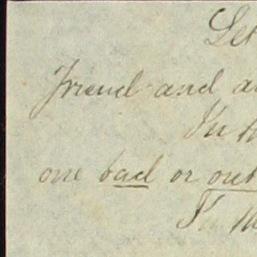 Let
Friend and a
In
one bad or out